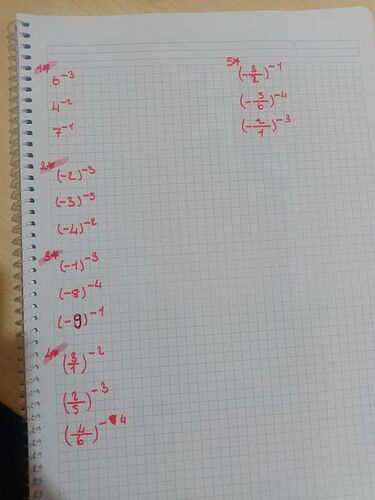 1*
6⁻³
4⁻²
7⁻¹
2*
(-2)⁻³
(-3)⁻⁵
(-4)⁻²
3*
(-1)⁻³
(-8)⁻⁴
(-9)⁻¹
4*
(3/1)⁻²
(2/5)⁻³
(4/6)⁻⁴
5*
(-3/2)⁻¹
(-5/6)⁻⁴
(-2/1)⁻³